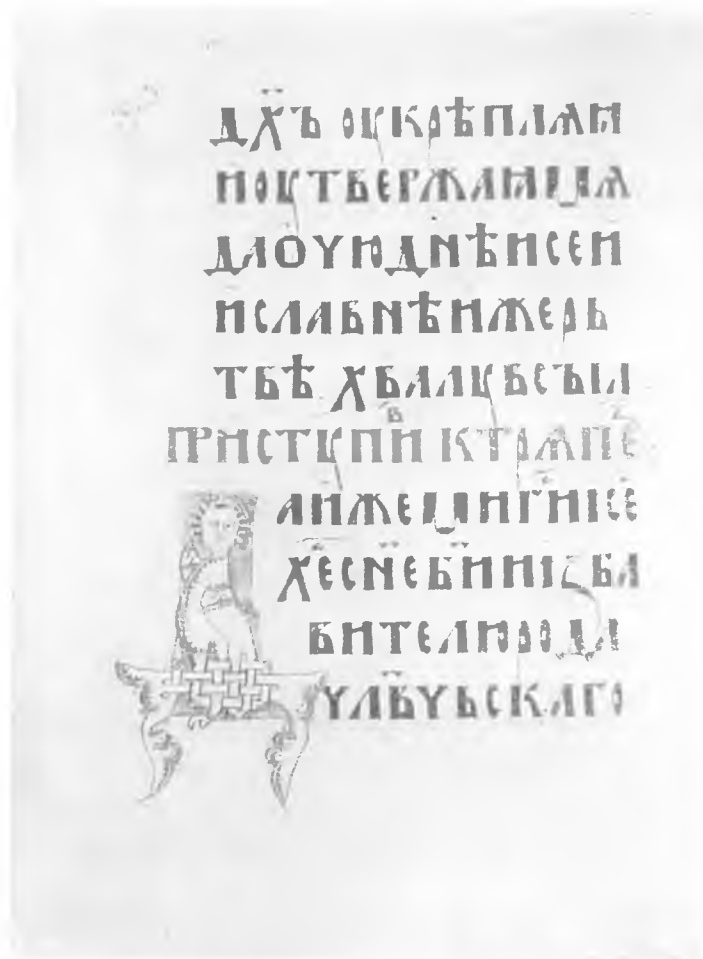 дх҃ъ оцкрѣплѧи
и оцтвержаꙗщѧ
дло чюднѣи сеи
и славнѣи жерь
твѣ хвалц всъіла
пристцпив к трѧпе
аи же щи г҃и іс҃е
х҃е сн҃е б҃ии изба
вителю рода
члв҃чьскаго